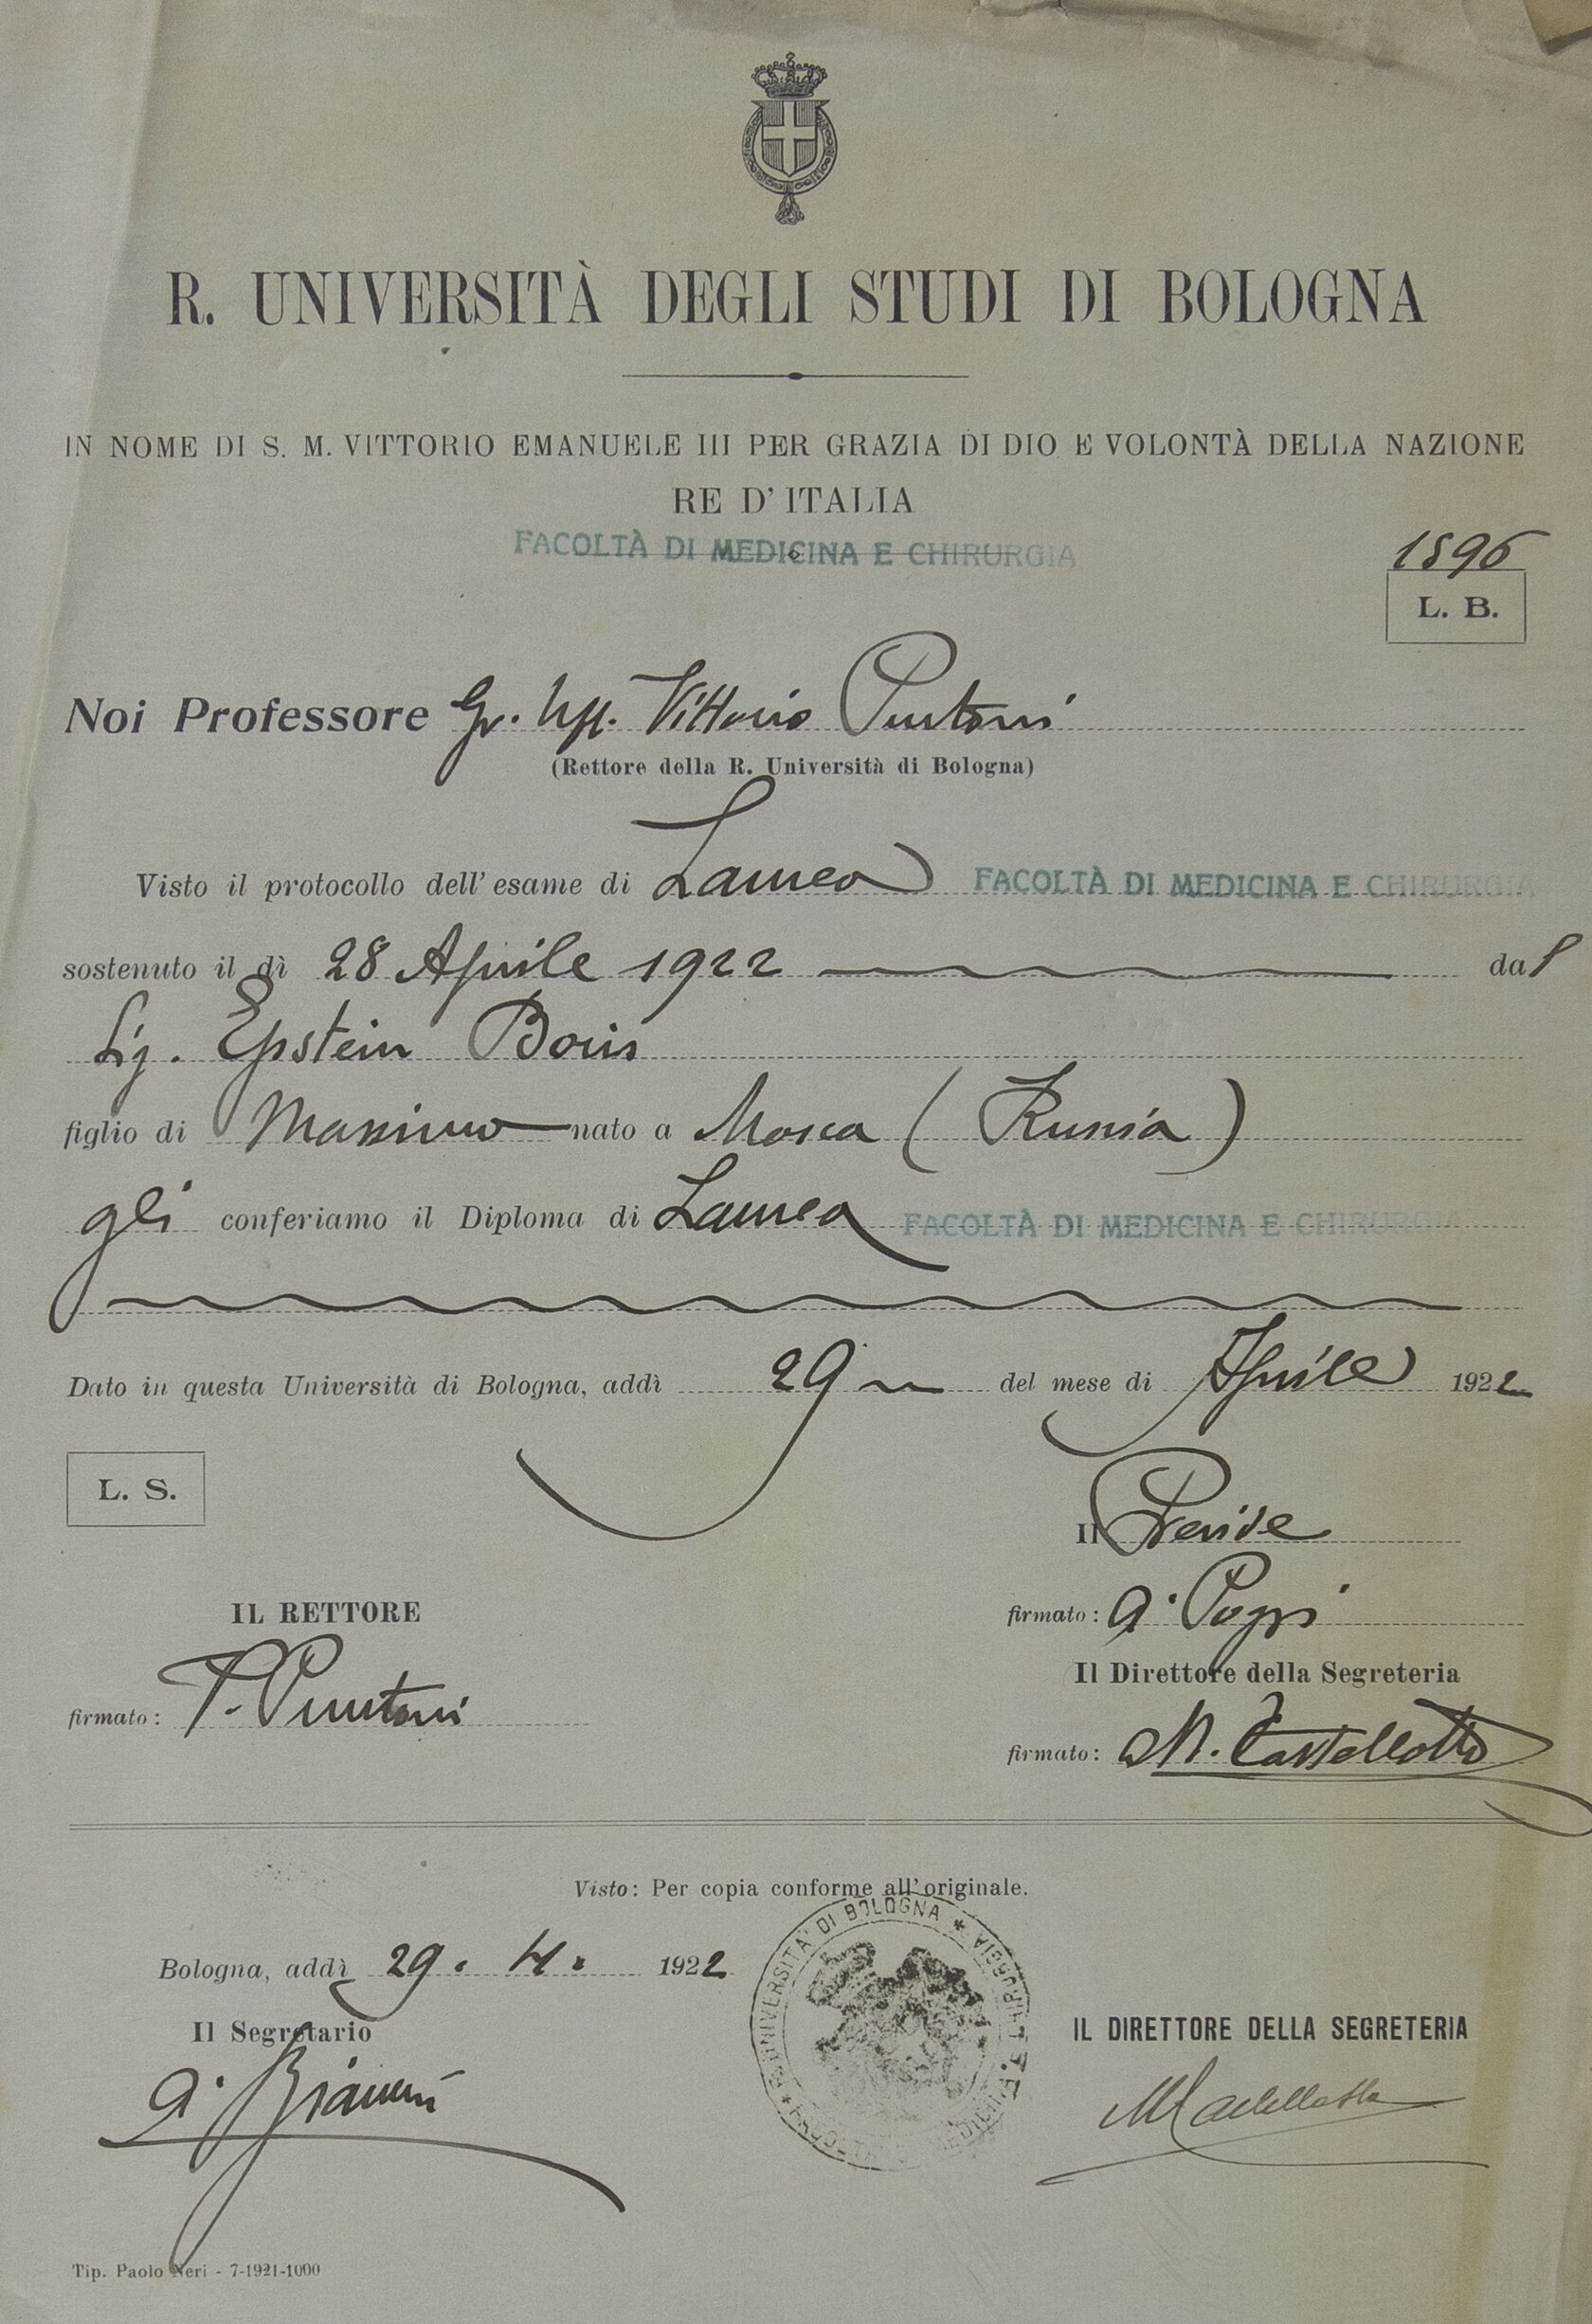 R. UNIVERSITÀ DEGLI STUDI DI BOLOGNA
IN NOME DI S. M. VITTORIO EMANUELE III PER GRAZIA DI DIO E VOLONTÀ DELLA NAZIONE
RE D'ITALIA
FACOLTÀ DI MEDICINA E CHIRURGIA
1896
L. B.
Noi Professore Gr. Uff. Vittorio Puntoni
(Rettore della R. Università di Bologna)
Visto il protocollo dell'esame di Laurea FACOLTÀ DI MEDICINA E CHIRURGIA
sostenuto il dì 28 Aprile 1922 dal
Sig. Epstein Boris
figlio di Massimo nato a Mosca (Russia)
gli conferiamo il Diploma di Laurea FACOLTÀ DI MEDICINA E CHIRURGIA
Dato in questa Università di Bologna, addì 29 del mese di Aprile 1922
L. S.
Il Preside
IL RETTORE
firmato: G. Poggi
Il Direttore della Segreteria
firmato: V. Puntoni
firmato: M. Castellotto
Visto: Per copia conforme all'originale.
Bologna, addì 29. 4. 1922
R. UNIVERSITÀ DI BOLOGNA * FACOLTÀ DI MEDICINA E CHIRURGIA *
Il Segretario
IL DIRETTORE DELLA SEGRETERIA
Tip. Paolo Neri - 7-1921-1000